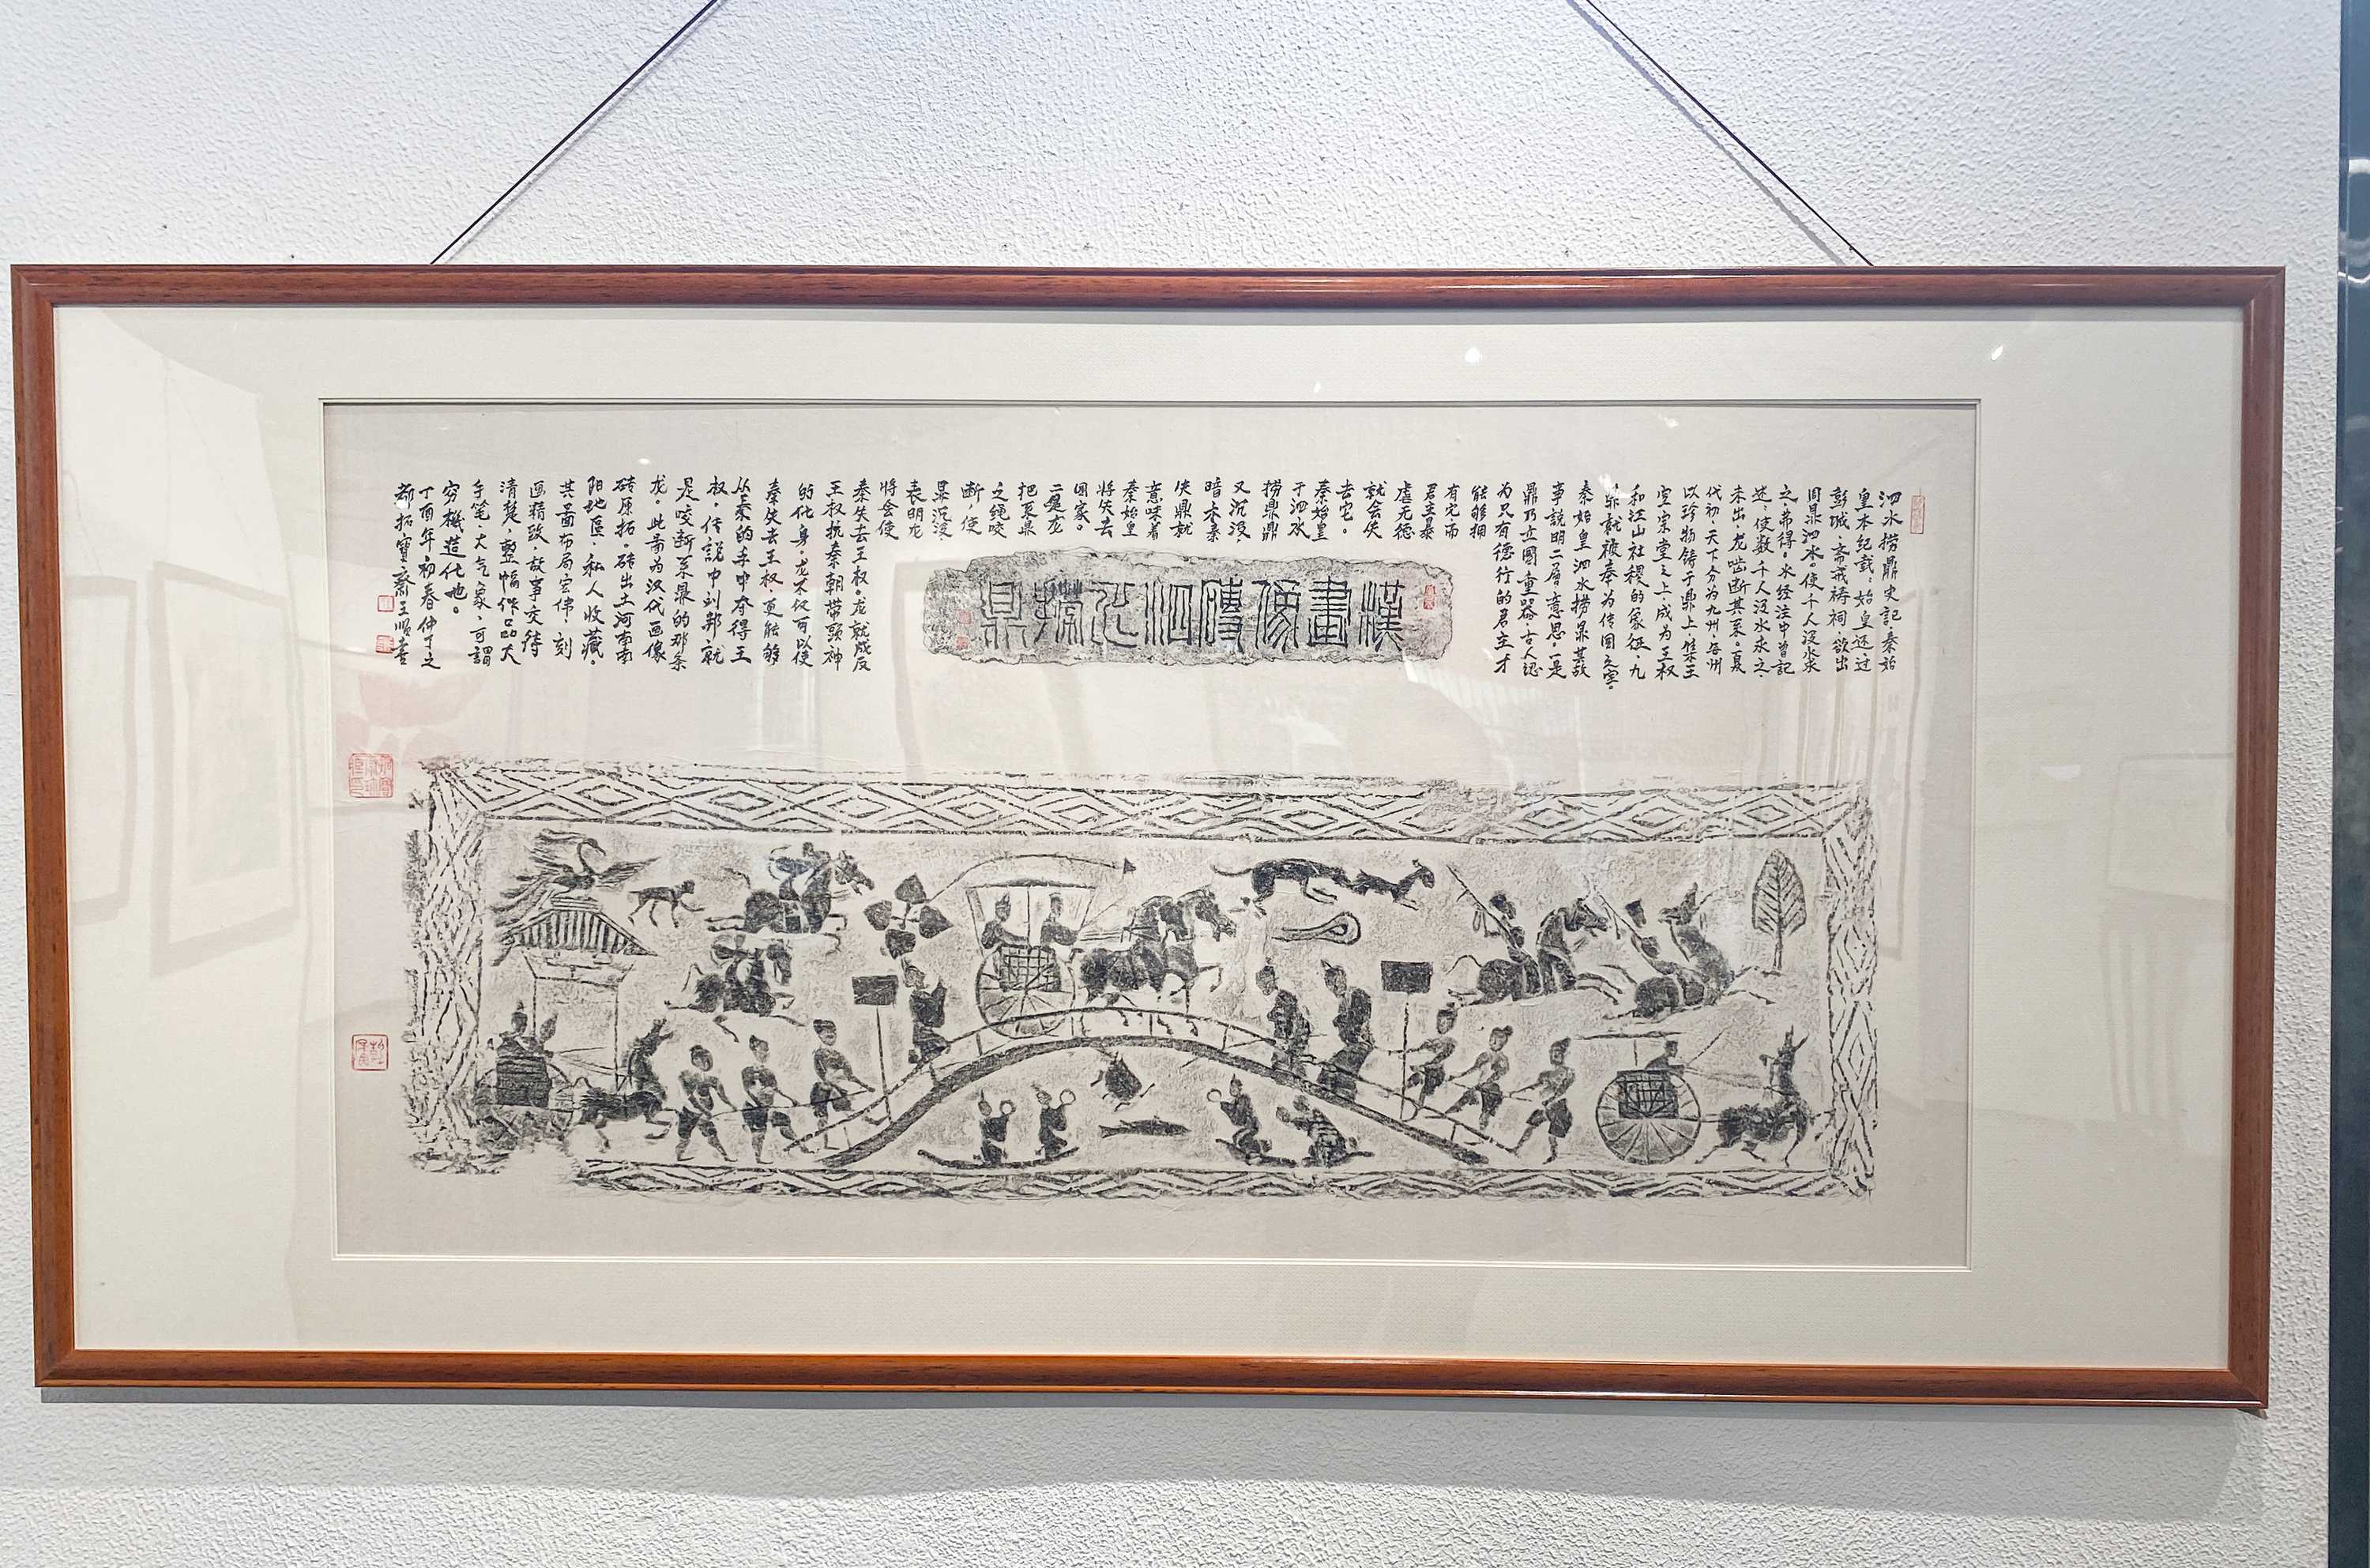 泗水捞鼎史记秦始
皇本纪载：始皇还过
彭城，斋戒祷祠，欲出
周鼎泗水。使千人没水求
之，弗得。水经注中曾记
述，使数千人没水求之，
未出，龙齿断其系。夏
代初，天下分为九州，每州
以珍物铸于鼎上，集王
室宗堂之上，成为王权
和江山社稷的象征，九
鼎就被奉为传国之宝。
秦始皇泗水捞鼎其故
事说明二层意思，一是
鼎乃立國重器，古人認
为只有德行的君主才
能够拥
有它而
君主暴
虐无德
就会失
去它。
秦始皇
于泗水
捞鼎鼎
又沉没，
暗示秦
失鼎就
意味着
秦始皇
将失去
国家。
二是龙
把系鼎
之绳咬
断，使
鼎沉没
表明龙
将会使
秦失去王权。龙就成反
王权抗秦朝带頭神
的化身。龙不仅可以使
秦失去王权，更能够
从秦的手中夺得王
权。传说中刘邦就
是咬断系鼎的那条
龙。此图为汉代画像
砖原拓。砖出土河南南
阳地區，私人收藏。
其图布局宏伟，刻
画精致，故事交待
清楚，整幅作品大
手笔，大气象，可謂
穷機造化也。
丁酉年初春仲
都拓寶齋王顺書
漢畫像磚泗水撈鼎